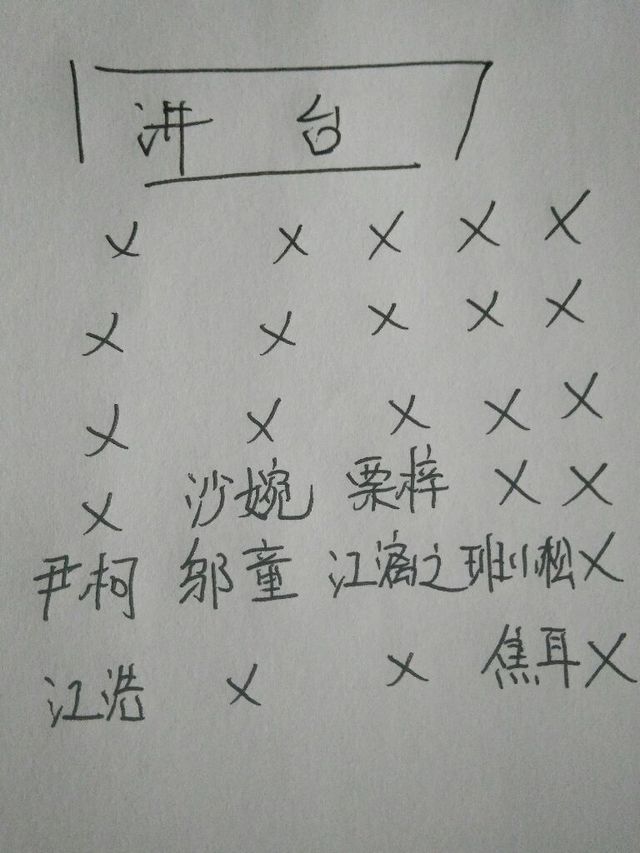 讲 台
× × × × ×
× × × × ×
× × × × ×
× 沙婉 栗梓 × ×
尹柯 邬童 江漓之 班小松 ×
江浩 × × 焦耳 ×